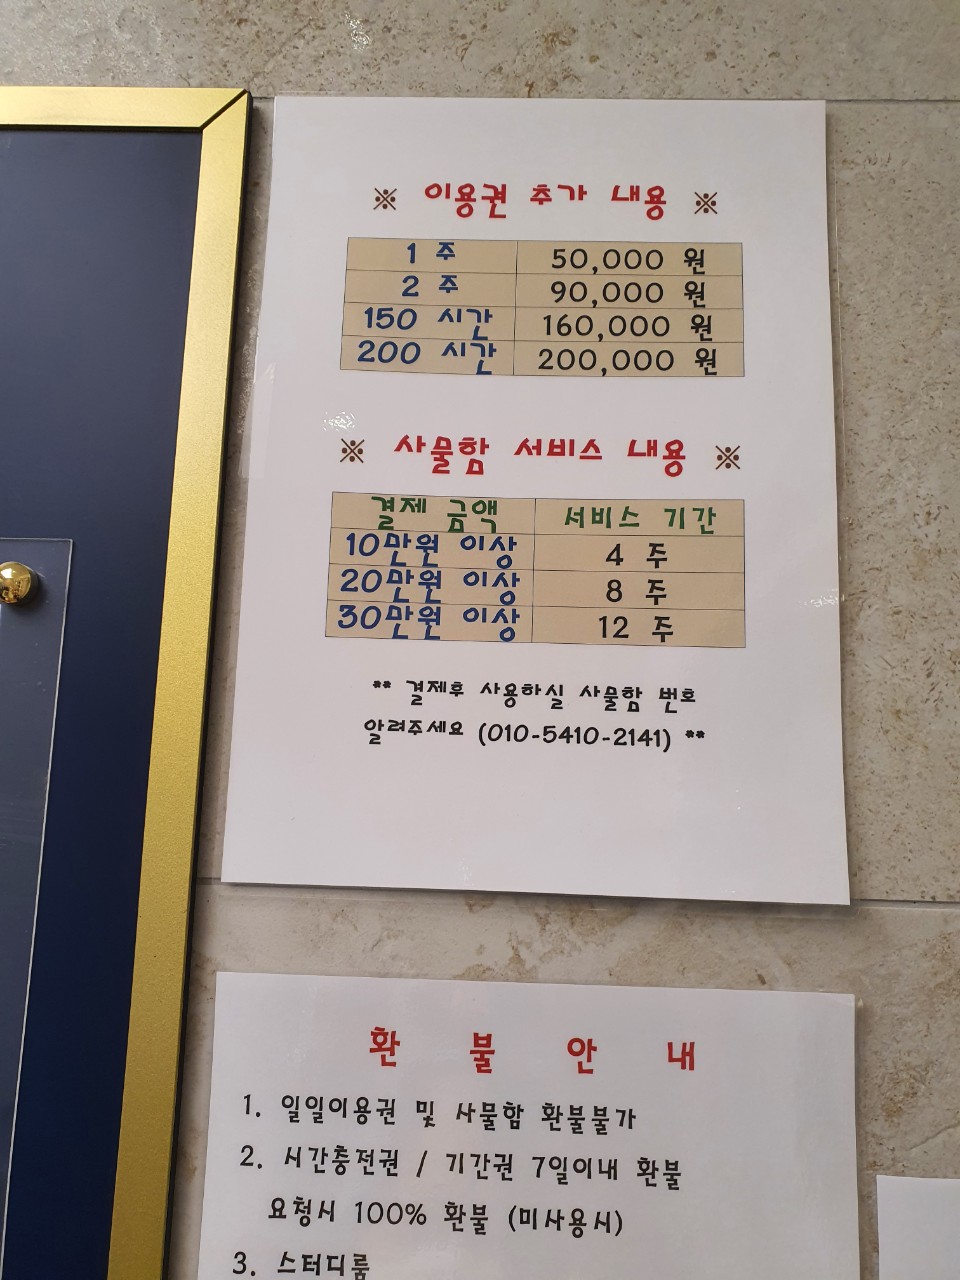 ※ 이용권 추가 내용 ※
1 주 50,000 원
2 주 90,000 원
150 시간 160,000 원
200 시간 200,000 원
※ 사물함 서비스 내용 ※
결제 금액 서비스 기간
10만원 이상 4 주
20만원 이상 8 주
30만원 이상 12 주
** 결제후 사용하실 사물함 번호
알려주세요 (010-5410-2141) **
환 불 안 내
1. 일일이용권 및 사물함 환불불가
2. 시간충전권 / 기간권 7일이내 환불
요청시 100% 환불 (미사용시)
3. 스터디룸